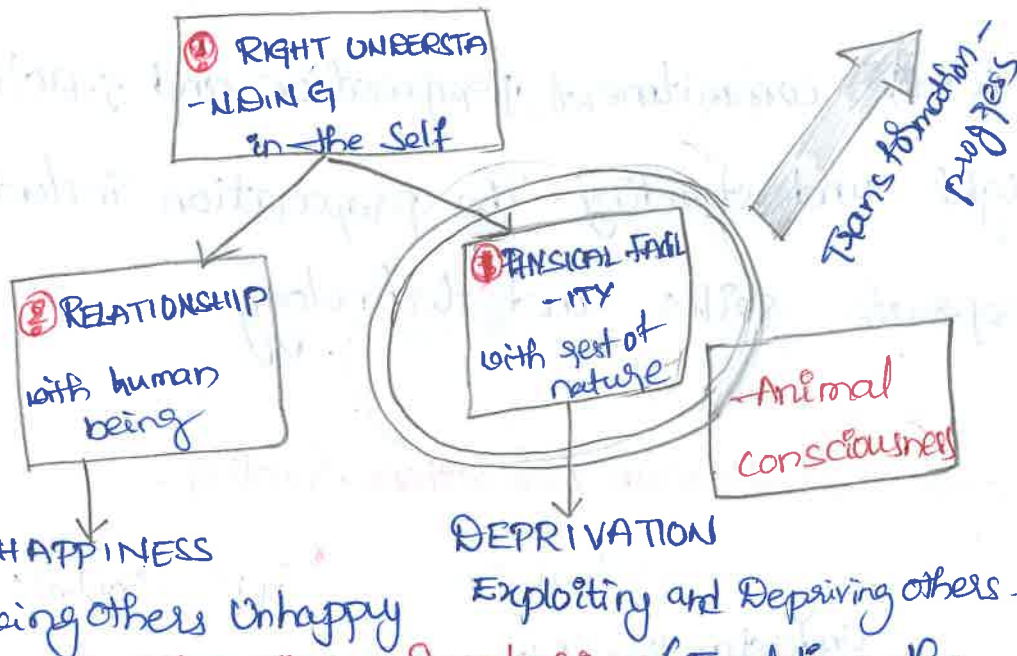 ① RIGHT UNDERSTA
-NDING
in the Self
Transformation -
progress
② RELATIONSHIP
with human
being
PHYSICAL FACIL
-ITY
with rest of
nature
Animal
consciousness
HAPPINESS
DEPRIVATION
others Unhappy
Exploiting and Depriving others -